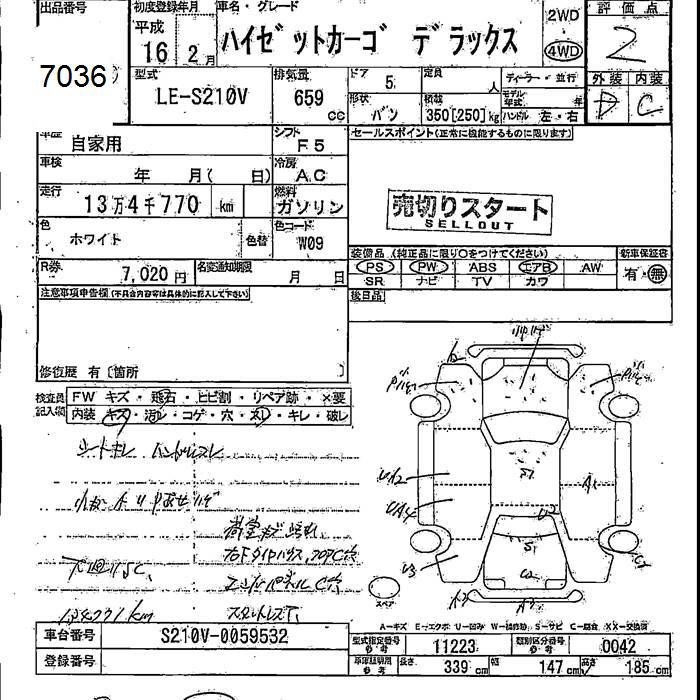 出品番号 初度登録年月 車名・グレード 評価点
平成 16年 2月 ハイゼットカーゴ デラックス 2WD 4WD 2
7036
型式 排気量 ドア 5 定員 人 ディーラー・並行 外装 内装
LE-S210V 659 cc 形状 バン 積載 350[250]kg モデル年式 年 ハンドル 左・右 D C
車歴 自家用 シフト F5 セールスポイント(正常に機能するものに限ります)
車検 年 月( 日) 冷房 AC
走行 13万4千770 km 燃料 ガソリン 売切りスタート
SELLOUT
色 ホワイト 色替 色コード W09
装備品 (純正品に限り○をつけてください) 新車保証書
R券 7,020円 名変通知期限 月 日 PS PW ABS エアB AW 有・無
SR ナビ TV カワ
注意事項申告欄(不具合内容等は具体的に記入して下さい) 後日品
修復歴 有〔箇所 〕
検査員記入欄 FW キズ・飛石・ヒビ割・リペア跡・×要
内装 キズ・汚レ・コゲ・穴・スレ・キレ・破レ
シートキレ ハンドルスレ
下廻りSC
134771km
UA2
UA4
A1
U2
U3
S1
スペア
A-キズ E-エクボ U-凹み W-補修跡 S-サビ C-腐食 XX-交換済
車台番号 S210V-0059532 型式指定番号 参考 11223 類別区分番号 参考 0042
登録番号 車庫証明用 参考 長さ 339 cm 幅 147 cm 高さ 185 cm